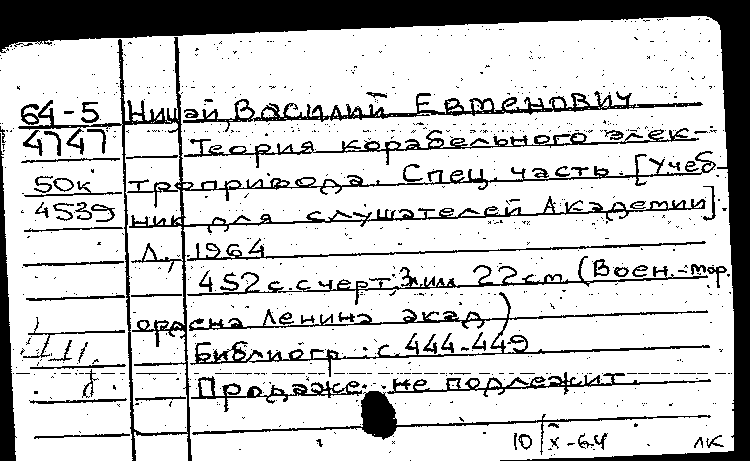 64-5 Ницай, Василий Евтенович
4747 Теория корабельного элек-
50к тропривода. Спец. часть. [Учеб-
4539 ник для слушателей Академии].
Л., 1964
452 с. с черт, 3л.илл 22 см (Воен.-мор.
ордена Ленина акад)
Библиогр.: с. 444-449.
Продаже не подлежит.
10/X-64 ЛК